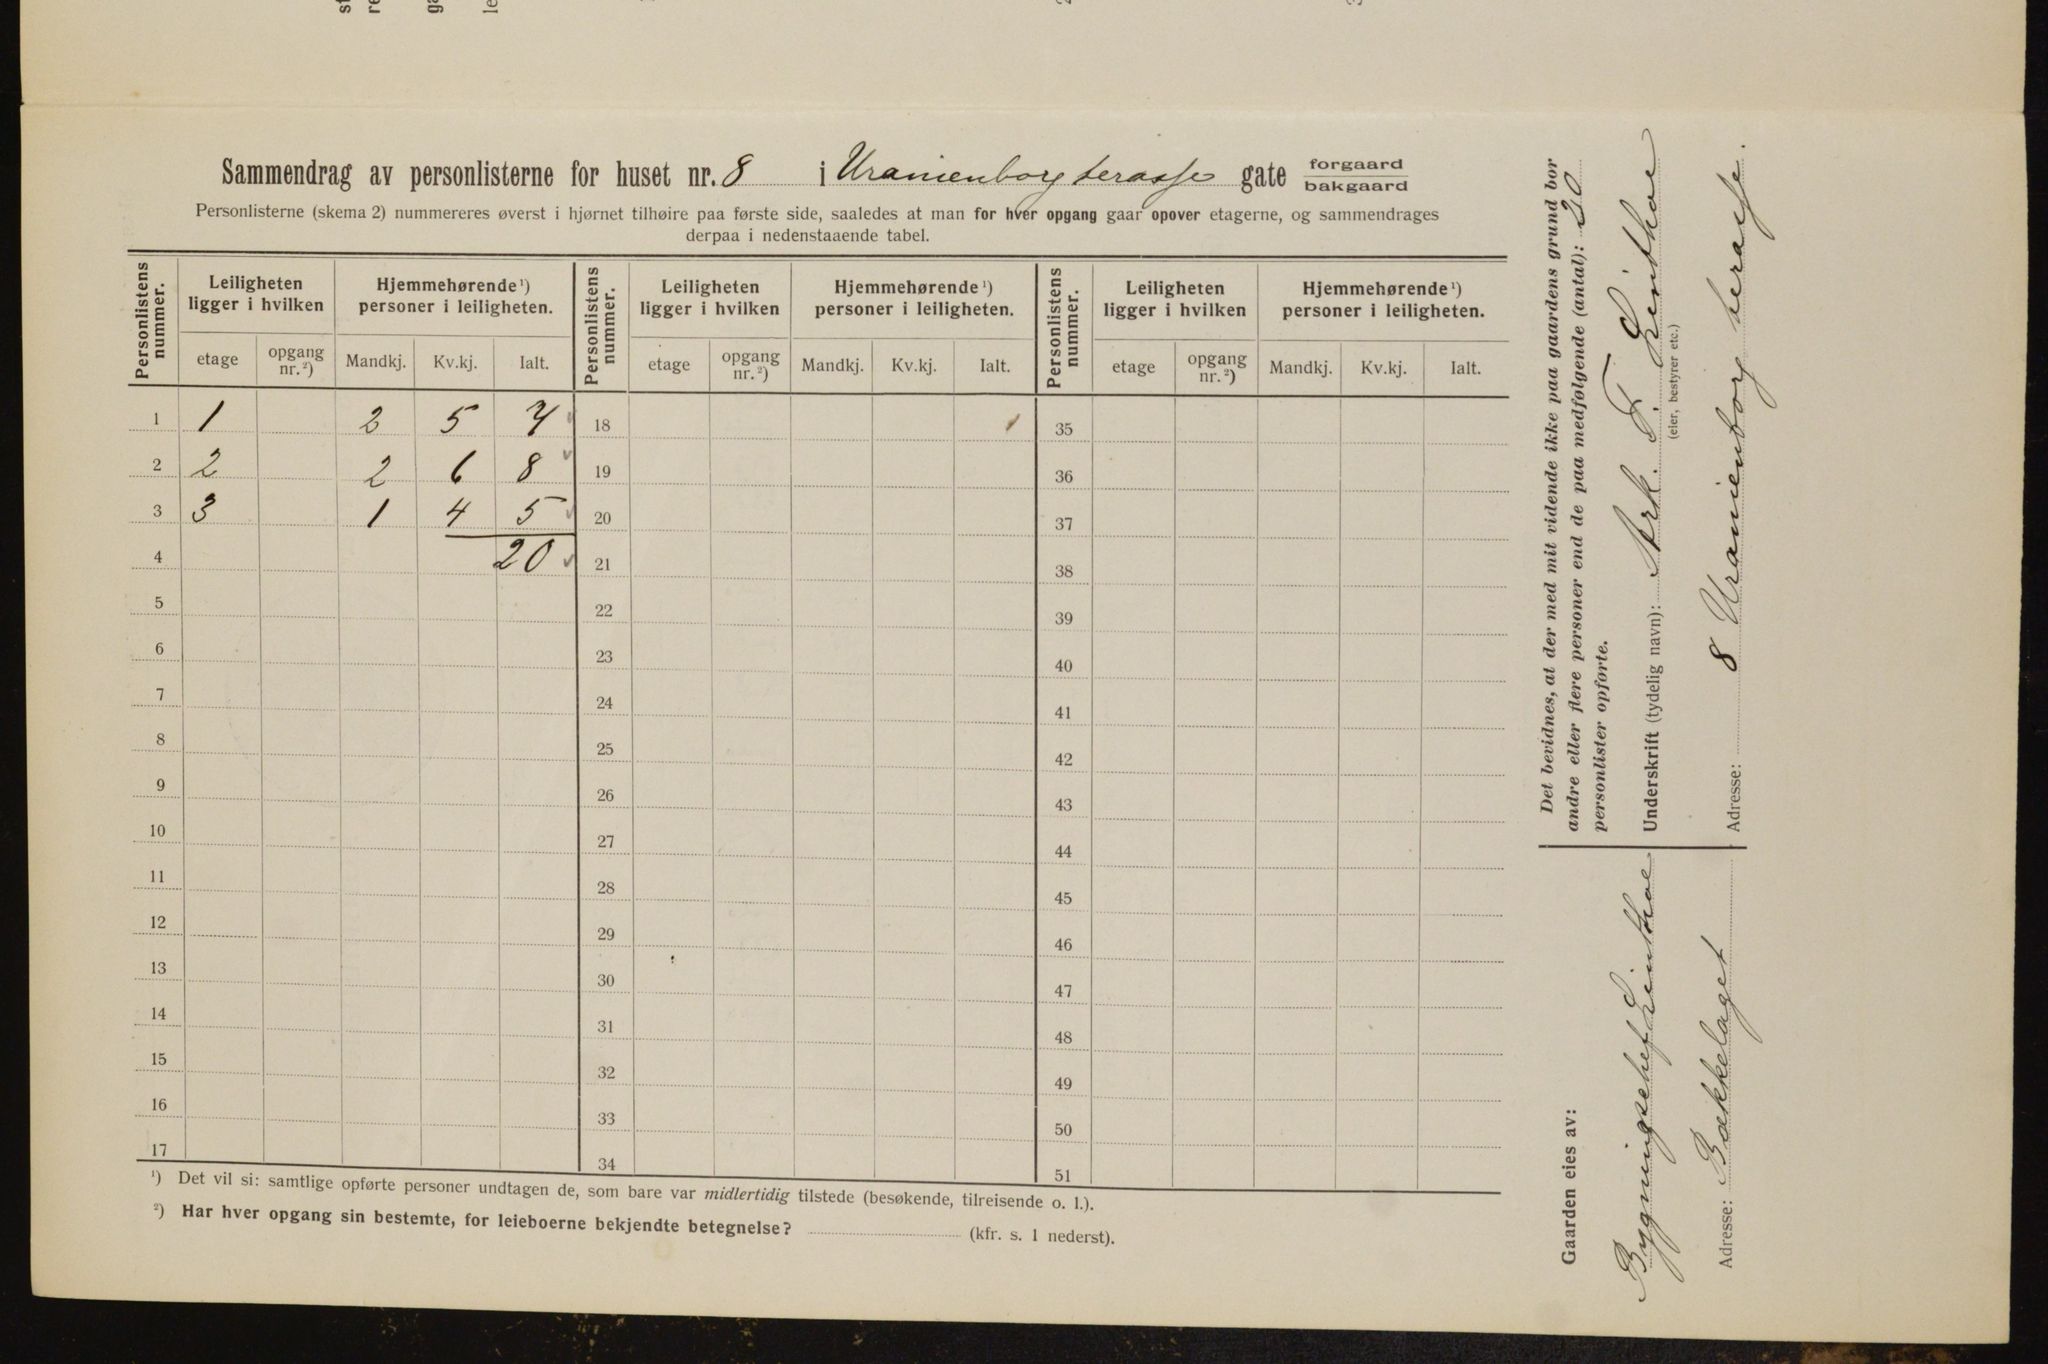 Sammendrag av personlisterne for huset nr. 8 i Uranienborg terasse gate forgaard
bakgaard
Personlisterne (skema 2) nummereres øverst i hjørnet tilhøire paa første side, saaledes at man for hver opgang gaar opover etagerne, og sammendrages
derpaa i nedenstaaende tabel.
Personlistens nummer. Leiligheten ligger i hvilken Hjemmehørende ¹) personer i leiligheten. Personlistens nummer. Leiligheten ligger i hvilken Hjemmehørende ¹) personer i leiligheten. Personlistens nummer. Leiligheten ligger i hvilken Hjemmehørende ¹) personer i leiligheten.
etage opgang nr. ²) Mandkj. Kv.kj. Ialt. etage opgang nr. ²) Mandkj. Kv.kj. Ialt. etage opgang nr. ²) Mandkj. Kv.kj. Ialt.
1 1 2 5 7 18 35
2 2 2 6 8 19 36
3 3 1 4 5 20 37
4 20 21 38
5 22 39
6 23 40
7 24 41
8 25 42
9 26 43
10 27 44
11 28 45
12 29 46
13 30 47
14 31 48
15 32 49
16 33 50
17 34 51
¹) Det vil si: samtlige opførte personer undtagen de, som bare var midlertidig tilstede (besøkende, tilreisende o. l.).
²) Har hver opgang sin bestemte, for leieboerne bekjendte betegnelse? (kfr. s. 1 nederst).
Det bevidnes, at der med mit vidende ikke paa gaardens grund bor
andre eller flere personer end de paa medfølgende (antal): 20
personlister opførte.
Underskrift (tydelig navn): Ark. F. Linthoe
(eier, bestyrer etc.)
Adresse: 8 Uranienborg terasse.
Gaarden eies av:
Bygningschef Linthoe
Adresse: Bækkelaget